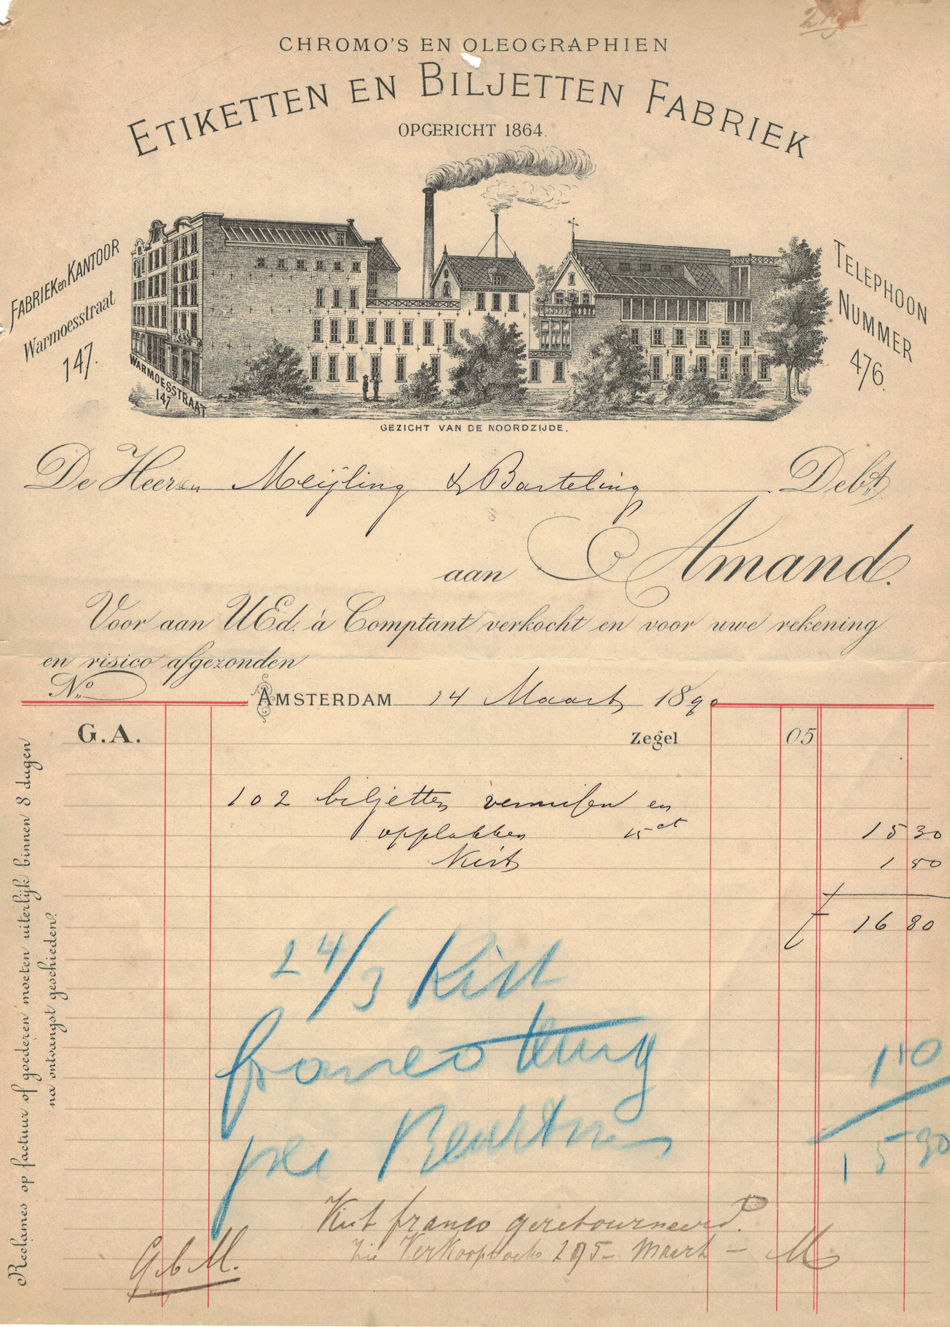 CHROMO'S EN OLEOGRAPHIEN
ETIKETTEN EN BILJETTEN FABRIEK
OPGERICHT 1864.
FABRIEK en KANTOOR
Warmoesstraat
147.
TELEPHOON
NUMMER
476.
WARMOESSTRAAT
147
GEZICHT VAN DE NOORDZIJDE.
De Heeren Meijling & Barteling Debt.
aan Amand.
Voor aan UEd. à Comptant verkocht en voor uwe rekening
en risico afgezonden
No.
AMSTERDAM 14 Maart 1890
G.A. Zegel 05
102 biljetten vernissen en
opplakken 15 ct 15 30
Kist 1 50
f 16 80
24/3 Kist
franco terug 1 50
per Beurtman 15 30
Kist franco geretourneerd.
Zie Verkoopboek 295 - Maart - M
G.b.M.
Reclames op factuur of goederen moeten uiterlijk binnen 8 dagen
na ontvangst geschieden.